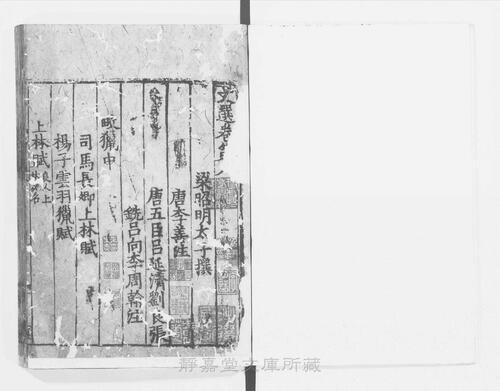 文選卷第八
梁昭明太子撰
唐李善注
唐五臣呂延濟劉良張
銑呂向李周翰注
畋獵中
司馬長卿上林賦
楊子雲羽獵賦
上林賦
靜嘉堂文庫所藏